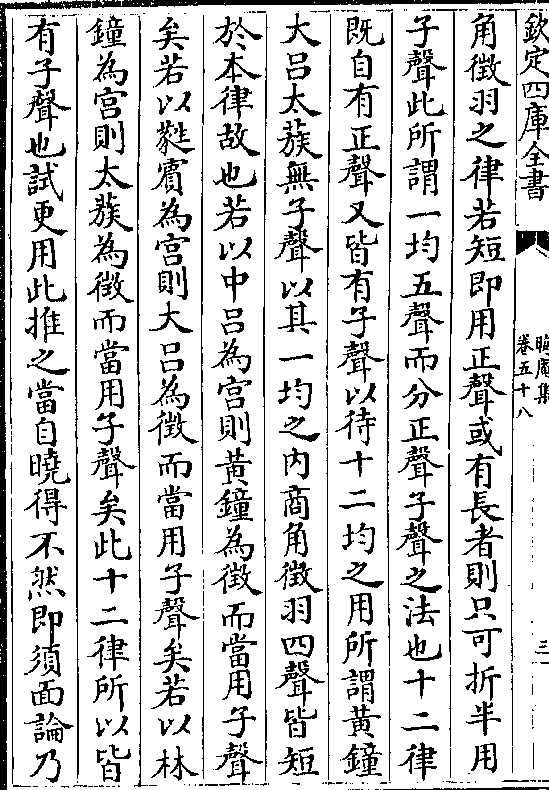 欽定四庫全書
晦庵集
卷五十八
角徵羽之律若短即用正聲或有長者則只可折半用
子聲此所謂一均五聲而分正聲子聲之法也十二律
既自有正聲又皆有子聲以待十二均之用所謂黄鐘
大呂太蔟無子聲以其一均之内商角徵羽四聲皆短
於本律故也若以中呂為宮則黄鐘為徵而當用子聲
矣若以蕤賓為宮則大呂為徵而當用子聲矣若以林
鐘為宮則太蔟為徵而當用子聲矣此十二律所以皆
有子聲也試更用此推之當自曉得不然即須面論乃